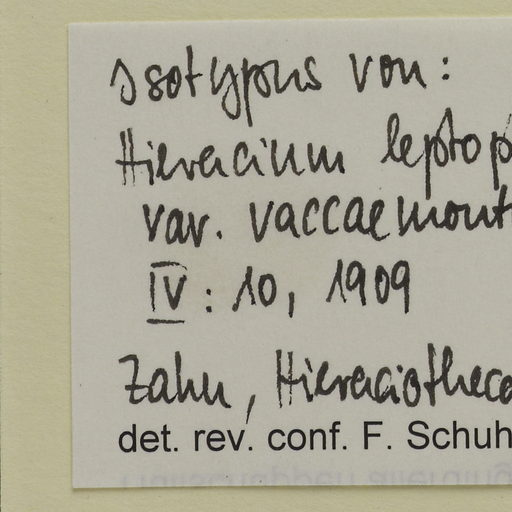 Isotypus von:
Hieracium leptop
var. vaccaemont
IV: 10, 1909
Zahn, Hieraciotheca
det. rev. conf. F. Schuh